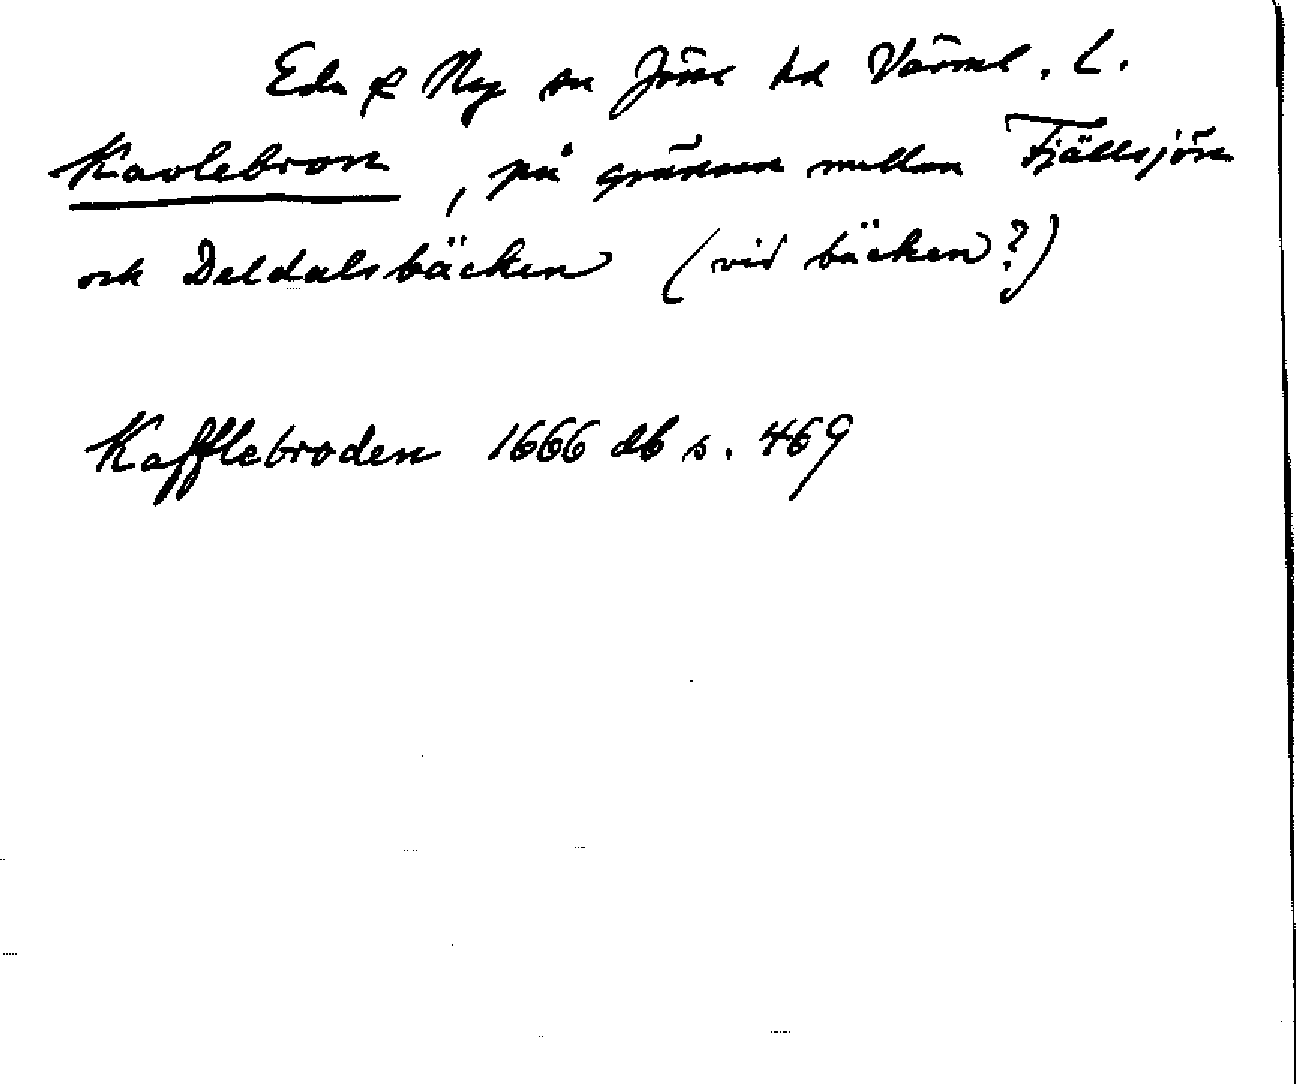 Eda & Ny sn Jösse hd Värml. L.
Kavlebron, på gränsen mellan Fjällsjön
och Deldalsbäcken (vid bäcken?)
Kafflebroden 1666 db s. 469